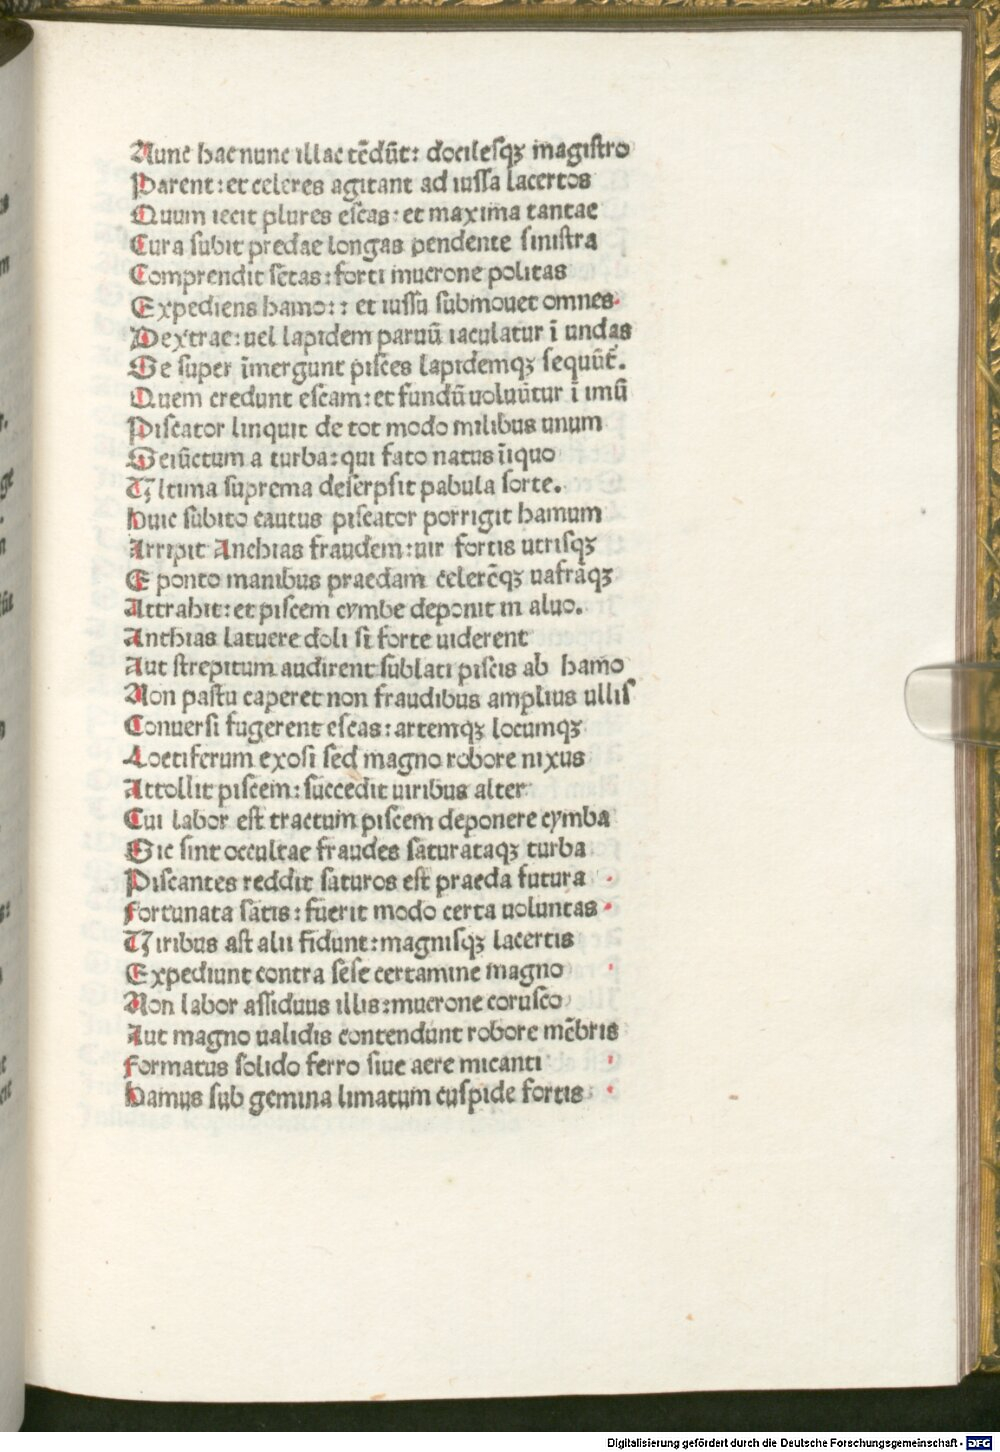 Nunc hac nunc illac tēdūt: docilesqꝫ magistro
Parent: et celeres agitant ad iussa lacertos
Quum iecit plures escas: et maxima tantae
Cura subit predae longas pendente sinistra
Comprendit setas: forti mucrone politas
Expediens hamo:: et iussu submouet omnes.
Dextrae: uel lapidem paruū iaculatur ī undas
Se super īmergunt pisces lapidemqꝫ sequūt̄.
Quem credunt escam: et fundū uoluūtur ī imū
Piscator linquit de tot modo milibus unum
Seiūctum a turba: qui fato natus īiquo
Vltima suprema deserpsit pabula sorte.
Huic subito cautus piscator porrigit hamum
Arripit Anchias fraudem: uir fortis utrisqꝫ
E ponto manibus praedam celerēqꝫ uafrāqꝫ
Attrahit: et piscem cymbe deponit in aluo.
Anthias latuere doli si forte uiderent
Aut strepitum audirent sublati piscis ab hamo
Non pastu caperet non fraudibus amplius ullis
Conuersi fugerent escas: artemqꝫ locumqꝫ
Loetiferum exosi sed magno robore nixus
Attollit piscem: succedit uiribus alter
Cui labor est tractum piscem deponere cymba
Sic sint occultae fraudes saturataqꝫ turba
Piscantes reddit saturos est praeda futura .
Fortunata satis: fuerit modo certa uoluntas
Viribus ast alii fidunt: magnisqꝫ lacertis
Expediunt contra sese certamine magno
Non labor assiduus illis: mucrone corusco
Aut magno ualidis contendunt robore mēbris
Formatus solido ferro siue aere micanti
Hamus sub gemina limatum cuspide fortis
Digitalisierung gefördert durch die Deutsche Forschungsgemeinschaft - DFG